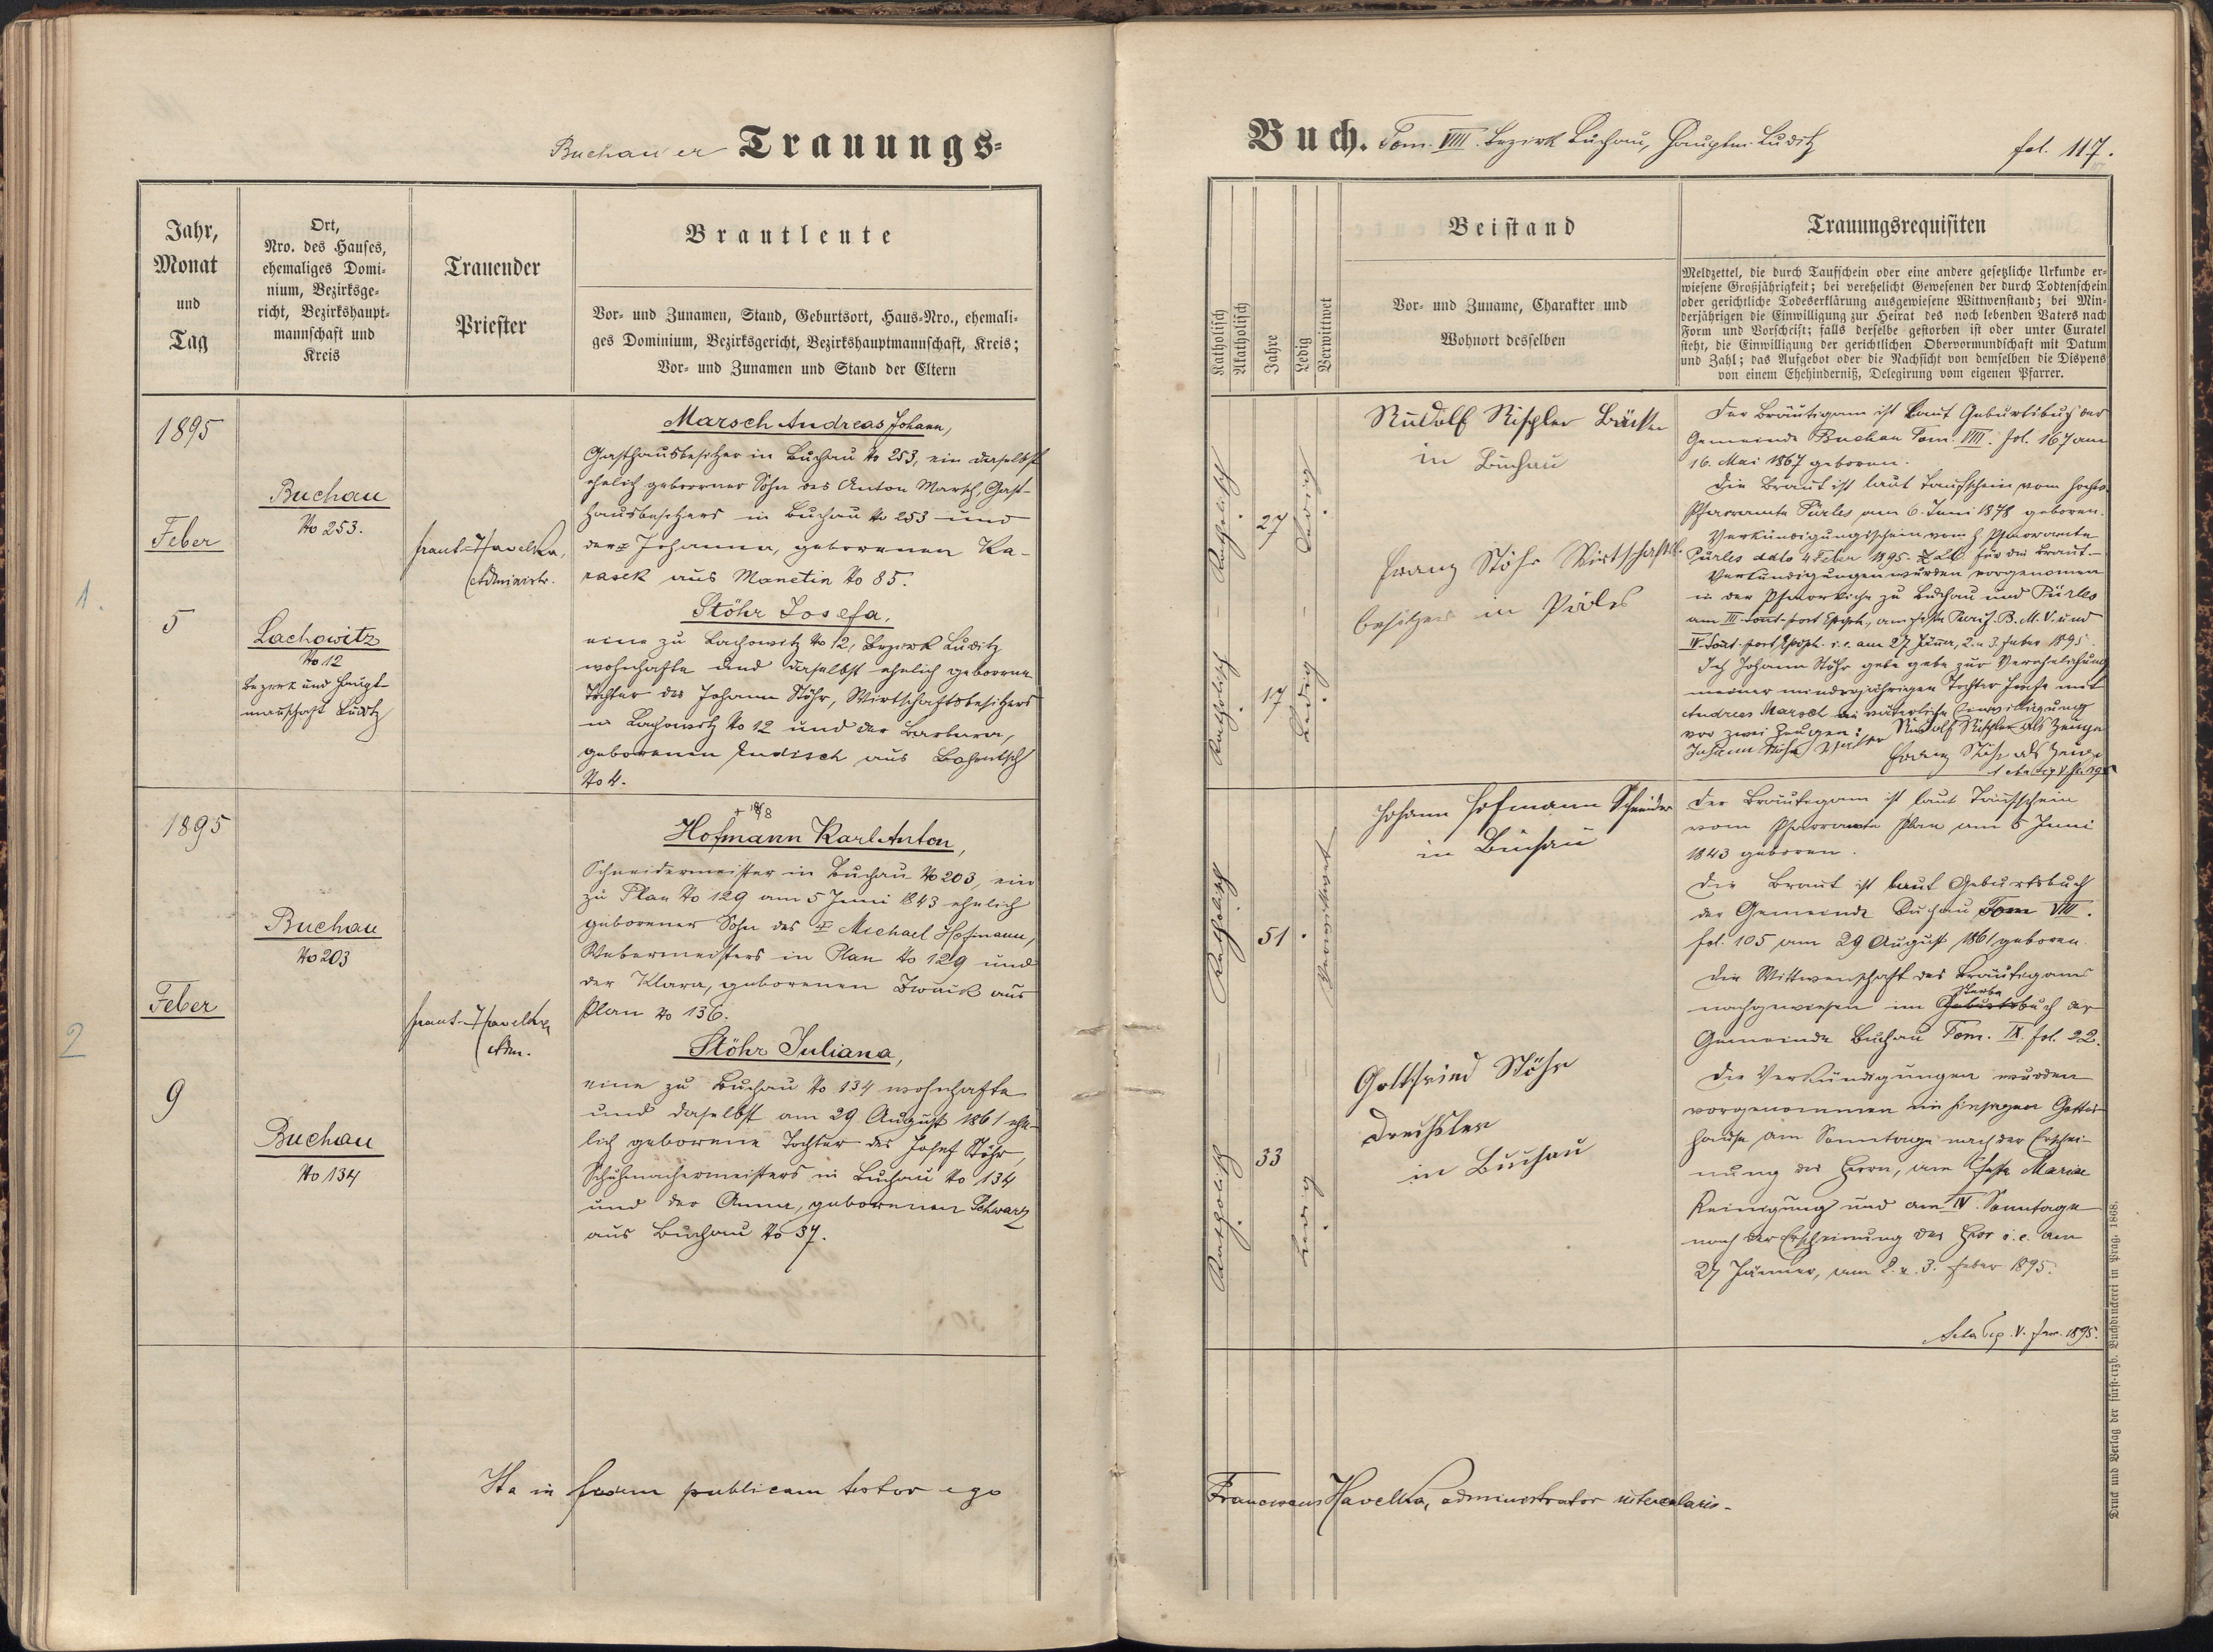 Buchauer Trauungs=
Jahr,
Monat
und
Tag
Ort,
Nro. des Hauses,
ehemaliges Domi-
nium, Bezirksge-
richt, Bezirkshaupt-
mannschaft und
Kreis
Trauender
Priester
Brautleute
Vor- und Zunamen, Stand, Geburtsort, Haus-Nro., ehemali-
ges Dominium, Bezirksgericht, Bezirkshauptmannschaft, Kreis;
Vor- und Zunamen und Stand der Eltern
1.
1895
Feber
5
Buchau
No 253.
Lachowitz
No 12
Bezirk und Haupt-
mannschaft Luditz
Havelka,
Administr.
Marsch Andreas Johann,
Gasthausbesitzer in Buchau No 253, ein daselbst
ehelich geborener Sohn des Anton Marsch, Gast-
hausbesitzers in Buchau No 253 und
der ‡ Johanna, geborenen Ka-
rasek aus Manetin No 85.
Stöhr Josefa,
eine zu Lachowitz No 12, Bezirk Luditz
wohnhafte und daselbst ehelich geborene
Tochter des Johann Stöhr, Wirtschaftsbesitzers
in Lachowitz No 12 und der Barbara,
geborenen Endisch aus
No 4.
2
1895
Feber
9
Buchau
No 203
Buchau
No 134
Havelka
Adm.
Hofmann Karl Anton,
Schneidermeister in Buchau No 203, ein
zu Plan No 129 am 5 Juni 1843 ehelich
geborener Sohn des ‡ Michael Hofmann,
Webermeisters in Plan No 129 und
der Klara, geborenen Zwaik aus
Plan No 136.
Stöhr Juliana,
eine zu Buchau No 134 wohnhafte
und daselbst am 29 August 1861 ehe-
lich geborene Tochter des Josef Stöhr,
Schuhmachermeisters in Buchau No 134
und der Anna, geborenen Schwarz
aus Buchau No 37.
Ita in fidem publicam testor ego
Buch. Tom. VIII. Bezirk Buchau, Hauptm. Luditz
fol. 117.
Katholisch
Akatholisch
Jahre
Ledig
Verwittwet
Beistand
Vor- und Zuname, Charakter und
Wohnort desselben
Trauungsrequisiten
Meldzettel, die durch Taufschein oder eine andere gesetzliche Urkunde er-
wiesene Großjährigkeit; bei verehelicht Gewesenen der durch Todtenschein
oder gerichtliche Todeserklärung ausgewiesene Wittwenstand; bei Min-
derjährigen die Einwilligung zur Heirat des noch lebenden Vaters nach
Form und Vorschrift; falls derselbe gestorben ist oder unter Curatel
steht, die Einwilligung der gerichtlichen Obervormundschaft mit Datum
und Zahl; das Aufgebot oder die Nachsicht von demselben die Dispens
von einem Ehehinderniß, Delegirung vom eigenen Pfarrer.
Katholisch
27
Ledig
Katholisch
17
Ledig
Rudolf Rischler Bäcker
in Buchau
Franz Stöhr Wirtschafts-
besitzer in
Der Bräutigam ist laut Geburtsbuch der
Gemeinde Buchau Tom. VIII. fol. 167 am
16. Mai 1867 geboren.
Die Braut ist laut Taufschein vom hochw.
Pfarramte Pürles am 6. Juni 1878 geboren.
Verkündigungsschein vom h. Pfarramte
Pürles ddto 4 Feber 1895. für die Braut.
Verkündigungen wurden vorgenomen
in der Pfarrkirche zu Buchau und Pürles
am III am feste Purif. B. M. V. und
IV i. e. am 27 Jänner, 2. u. 3. Feber 1895.
Ich Johann Stöhr gebe zur Verehelichung
meiner minderjährigen Tochter Josefa mit
Andreas Marsch die väterliche Einwilligung
vor zwei Zeugen: Rudolf Rischler als Zeuge
Johann Stöhr Vater Franz Stöhr als Zeuge
Katholisch
51
Verwittwet
Katholisch
33
Ledig
Johann Hofmann Schneider
in Buchau
Gottfried Stöhr
Drechsler
in Buchau
Der Bräutigam ist laut Taufschein
vom Pfarramte Plan am 5 Juni
1843 geboren.
Die Braut ist laut Geburtsbuch
der Gemeinde Buchau Tom VIII.
fol. 105 am 29 August 1861 geboren.
Die Wittwenschaft des Bräutigams
nachgewiesen im Sterbebuch der
Gemeinde Buchau Tom. IX. fol. 22.
Die Verkündigungen wurden
vorgenommen im hiesigen Gottes-
hause am Sonntage nach der Erschei-
nung des Herrn, am feste Mariae
Reinigung und am IV. Sonntage
nach der Erscheinung des Herr i. e. am
27 Jänner, am 2. u. 3. Feber 1895.
Acta 1895.
Franciscus Havelka, administrator intercalaris.
Druck und Verlag der fürst-erzb. Buchdruckerei in Prag. 1868.